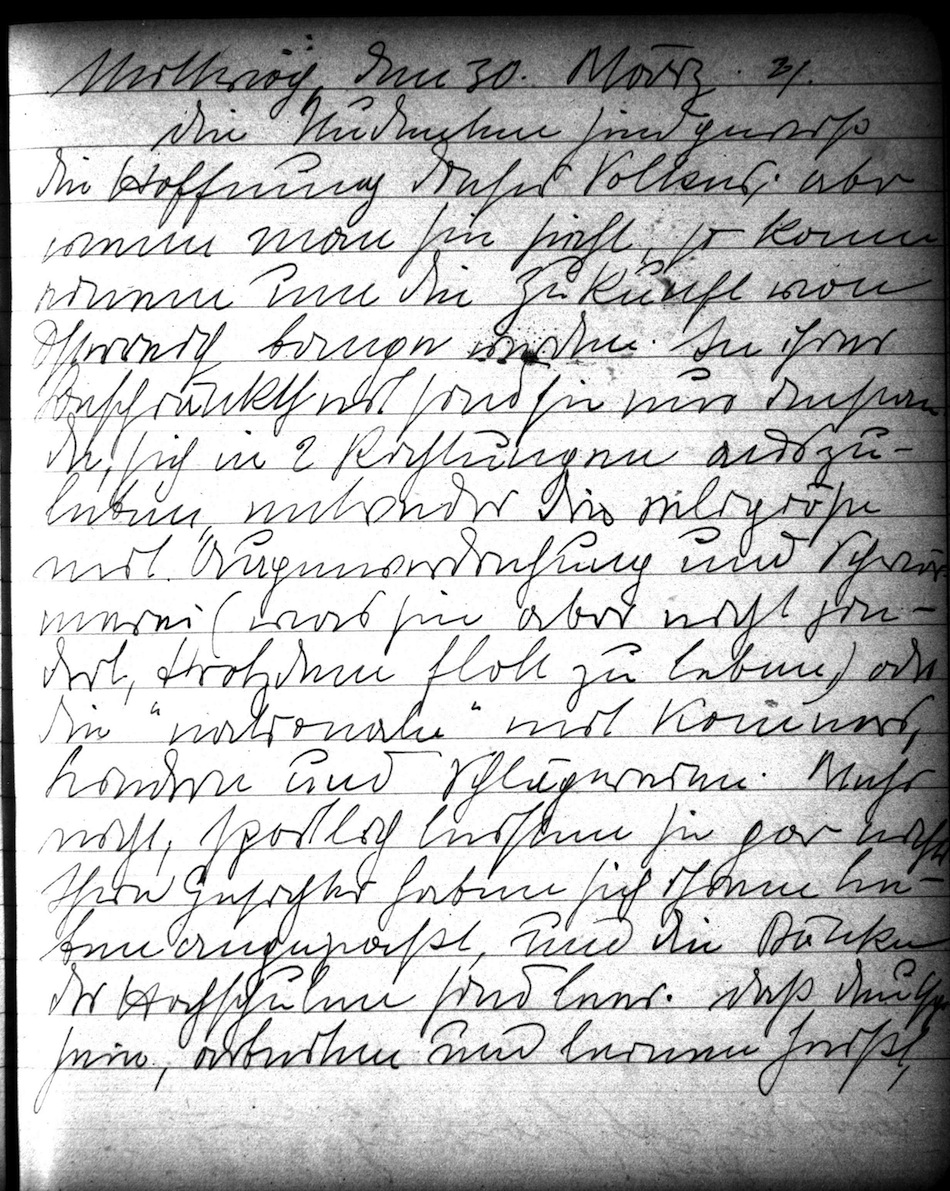 Mittwoch, den 30. März 31.
Die Studenten sind gewiß
die Hoffnung dieses Volkes, aber
wenn man sie sieht, so kann
einem um die Zukunft von
Österreich bange werden. In ihrer
Beschränktheit sind sie nur imstan
de, sich in 2 Richtungen auszu-
leben, entweder die religiöse
mit Augenverdrehung und Schwär
merei (was sie aber nicht hin-
dert, trotzdem flott zu leben) oder
die "nationale" mit Kommers,
und Schlägereien. Mehr
nicht, sportlich leisten sie gar nichts
Ihre Gesichter haben sich ihrem Le-
ben angepaßt, und die Bänke
der Hochschulen sind leer. Daß deutsch
sein, arbeiten und lernen heißt,